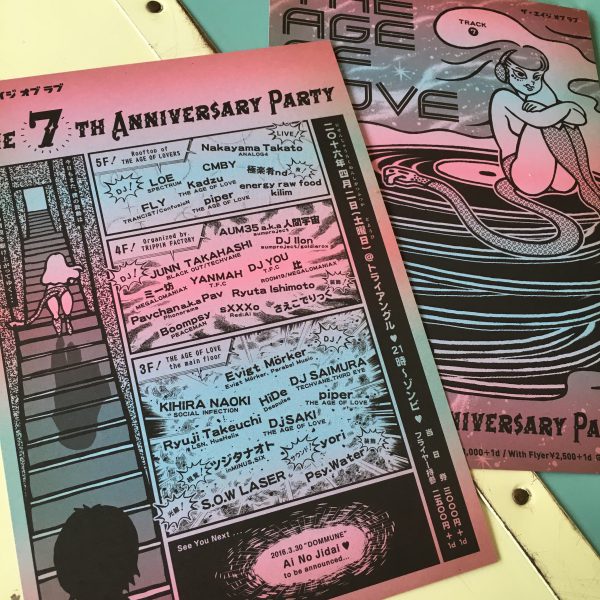 エイジ オブ ラブ
HE 7TH ANNIVERSARY PARTY
5F! Rooftop of THE AGE OF LOVERS
LIVE!
Nakayama Takato
ANALOG4
DJ!
LOE
SPECTRUM
CMBY
極楽者nd
FLY
TRANCIST/ConfusioN
Kadzu
THE AGE OF LOVE
piper
THE AGE OF LOVE
energy raw food
kilim
4F! Organized by. TRIPPIN FACTORY
AUM35 a.k.a 人間宇宙
aumproject
DJ!
JUNN TAKAHASHI
BLACK OUT/TECHVANE
DJ Ilon
aumproject/goldierox
ミー坊
MEGALOMANIAX
YANMAH
T.F.C
DJ YOU
T.F.C
比
ROOM19/MEGALOMANIAX
Pavchan a.k.a Pav
Phonorama
Ryuta Ishimoto
装飾
Boompsy
PEACEMAN
sXXXo
Red:Ai
さえこでりっく
3F! THE AGE OF LOVE the main floor
DJ!
Evigt Mörker
Evigt Mörker, Parabel Music
KIHIRA NAOKI
SOCIAL INFECTION
HiDe
Deepulse
DJ SAIMURA
TECHVANE, THIRD EYE
Ryuji Takeuchi
LSN, HueHelix
DJ SAKI
THE AGE OF LOVE
piper
THE AGE OF LOVE
ツジタナオト
inMINUS.SIX
yori
装飾
S.O.W LASER
Psy.Water
See You Next ...
2016.3.30 "DOMMUNE"
Ai No Jidai ♥
to be announced...
二〇十六年四月二日(土曜日)@トライアングル♥21時〜ゾンビ♥
当日券 三〇〇〇円+1d
フライヤー持参 二五〇〇円+1d
ザ・エイジ オブ ラブ
THE
AGE
OF
LOVE
TRACK
7
NNIVERSARY PA
,000+1d / With Flyer¥2,500+1d @